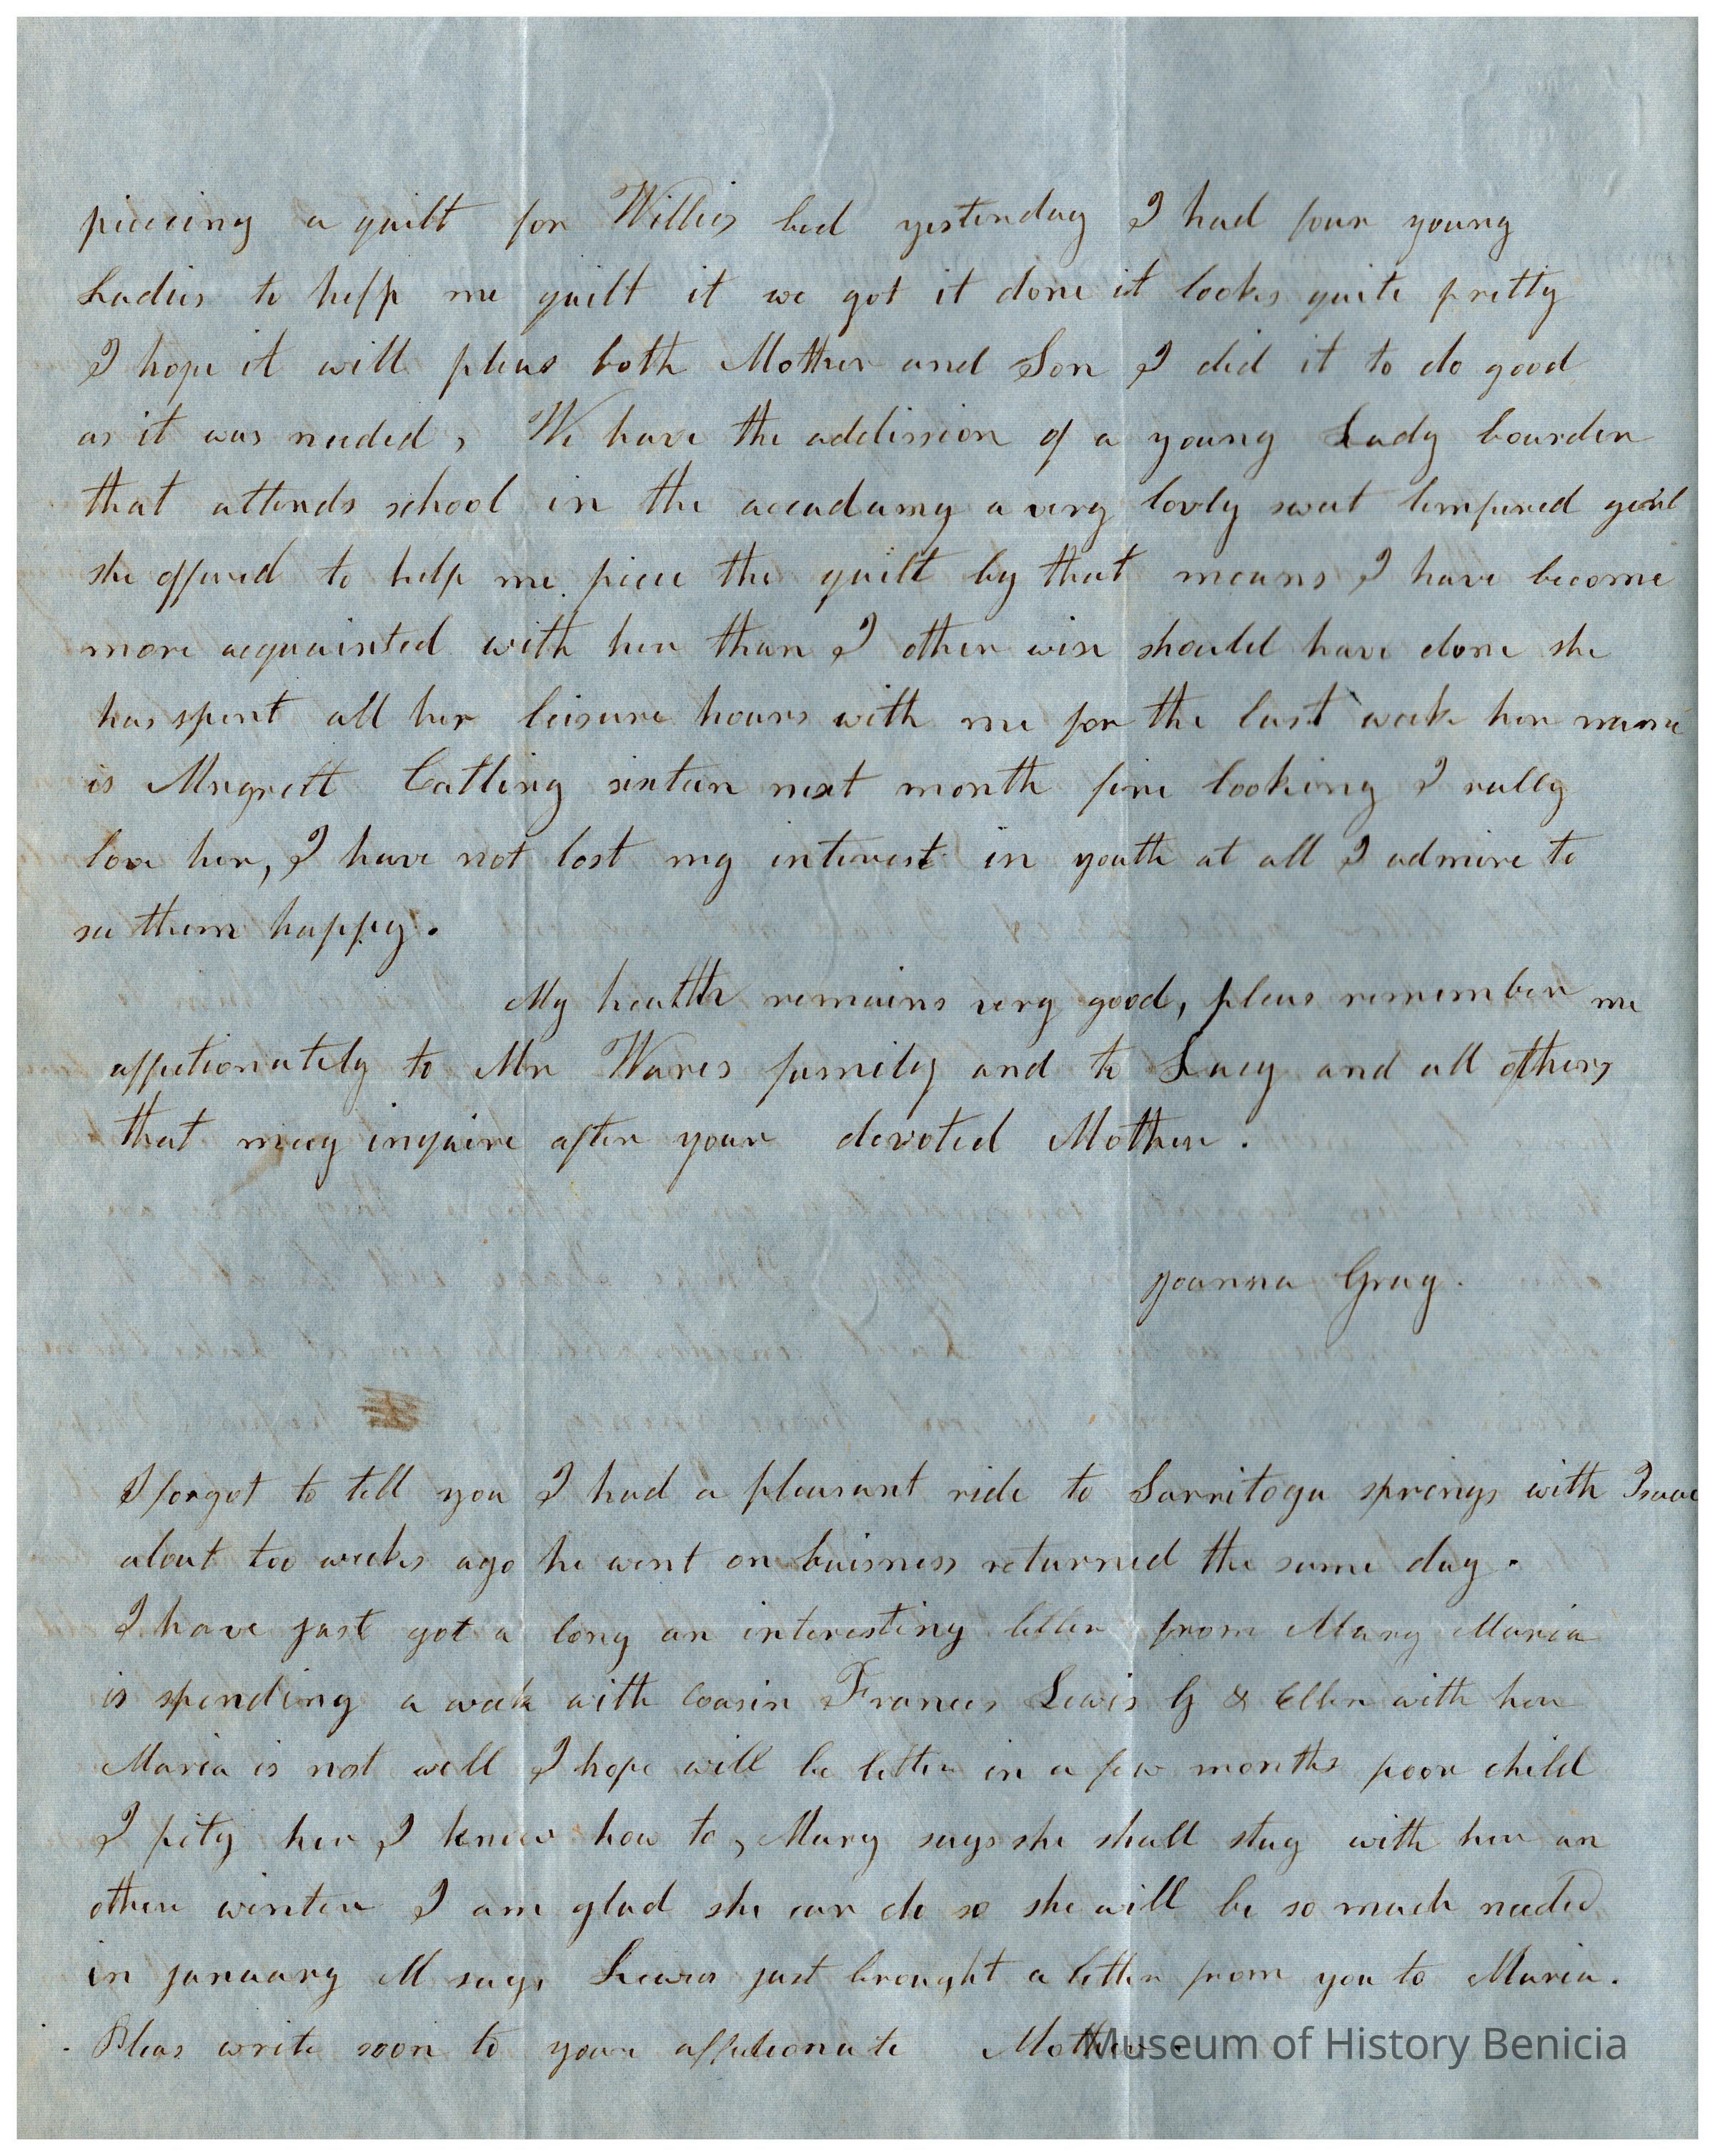 piecing a quilt for Willies bed yesterday I had four young
Ladies to help me quilt it we got it done it looks quite pretty
I hope it will pleas both Mother and Son I did it to do good
as it was needed, We have the addission of a young Lady bourder
that attends school in the accadamy a very lovly sweet tempered girl
she offered to help me piece the quilt by that means I have become
more acquainted with her than I other wise should have done she
has spent all her leisure hours with me for the last week her name
is Mrgrett Catling sixteen next month fine looking I really
love her, I have not lost my interest in youth at all I admire to
see them happy.
My health remains very good, pleas remember me
affectionately to Mr Wares family and to Lucy and all others
that may inquire after your devoted Mother.
Joanna Gray.
I forgot to tell you I had a pleasant ride to Sarritoga springs with Isaac
about too weeks ago he went on buisness returned the same day.
I have just got a long an interesting letter from Mary Maria
is spending a week with Cousin Frances Lewis G & Ellen with her
Maria is not well I hope will be better in a few months poor child
I pity her I know how to, Mary says she shall stay with her an
other winter I am glad she can do so she will be so much needed
in january M says Lewis just brought a letter from you to Maria.
Pleas write soon to your affectionate Mother
Museum of History Benicia